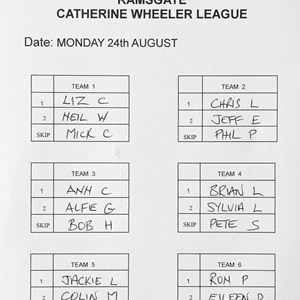 RAMSGATE
CATHERINE WHEELER LEAGUE
Date: MONDAY 24th AUGUST
TEAM 1
1 LIZ C
2 NEIL W
SKIP MICK C
TEAM 2
1 CHRIS L
2 JEFF E
SKIP PHIL P
TEAM 3
1 ANN C
2 ALFIE G
SKIP BOB H
TEAM 4
1 BRIAN L
2 SYLVIA L
SKIP PETE S
TEAM 5
1 JACKIE L
2 COLIN M
TEAM 6
1 RON P
2 EILEEN